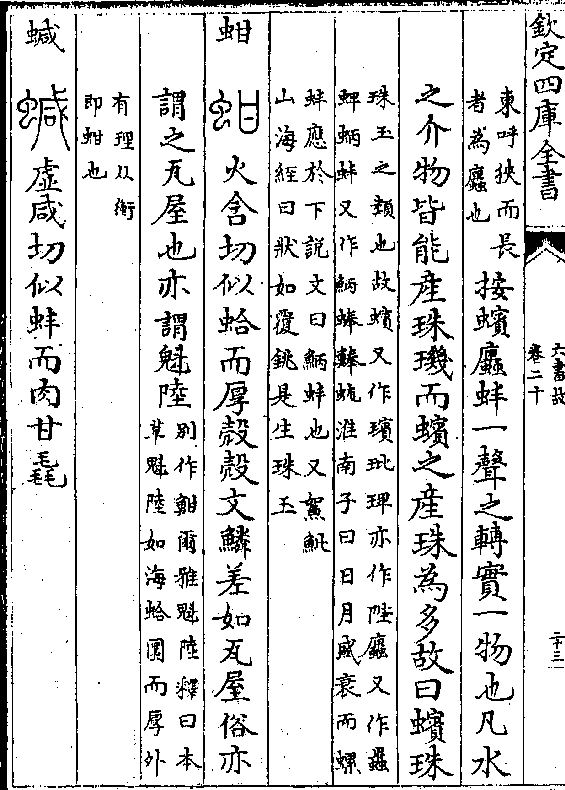 欽定四庫全書
六書故
卷二十
二十三
東呼狹而長
者為蠯也
按蠙蠯蚌一聲之轉實一物也凡水
之介物皆能産珠璣而蠙之産珠為多故曰蠙珠
珠玉之類也故蠙又作璸玭琕亦作陛蠯又作
蜱蛃蚌又作鮩蜯霯蚢淮南子曰日月盛衰而螺
蚌應於下説文曰鮩蚌也又鴽䱔
山海經曰狀如覆銚是生珠玉
蚶
火含切似蛤而厚殼殼文鱗差如瓦屋俗亦
謂之瓦屋也亦謂魁陸
别作魽爾雅魁陸釋曰本
草魁陸如海蛤圓而厚外
有理以衡
即蚶也
蝛
虚咸切似蚌而肉甘毳